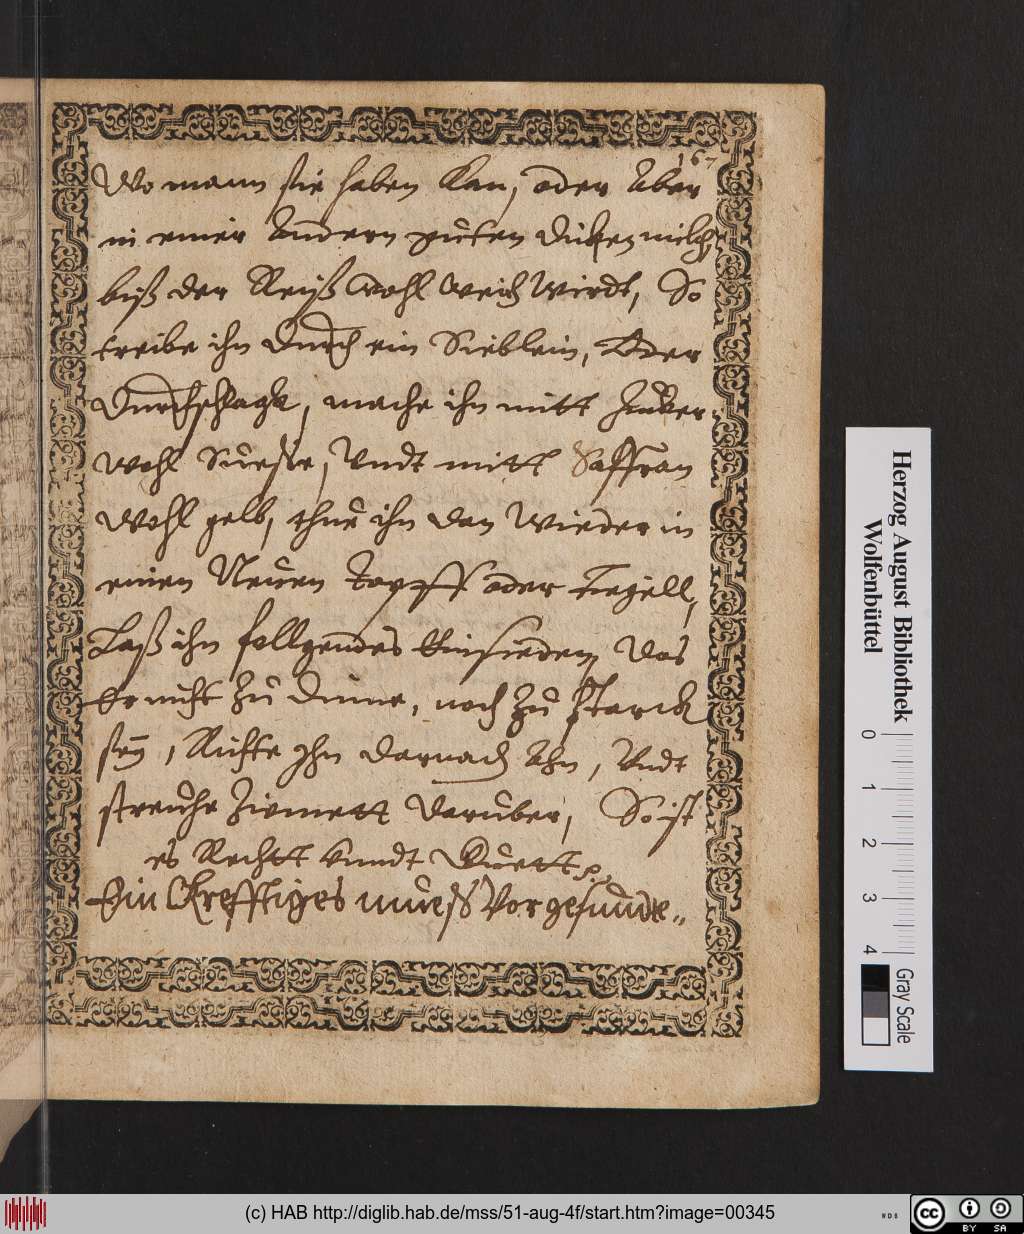 167
Wo mann sie haben kan, oder Aber
in einer Andern gutten dicken milch
biß der Reiß wohl weich wirdt, So
treibe ihn durch ein Sieblein, Oder
Durchschlagk, mache ihn mitt Zucker
wohl Suesse, Undt mitt Saffran
wohl gelb, thue ihn dan wieder in
einen Neuen Topff oder tiegell,
Laß ihn follgendes Einsieden, das
Er nicht zu dünne, noch zu starck
seÿ, Richte Ihn darnach Ahn, Undt
streuhe Ziemett darüber, So ist
es Rechtt unndt Guett
Ein Krefftiges mueß Vor gesunde
Herzog August Bibliothek
Wolfenbüttel
0 1 2 3 4
Gray Scale
(c) HAB http://diglib.hab.de/mss/51-aug-4f/start.htm?image=00345
WDB
cc BY SA